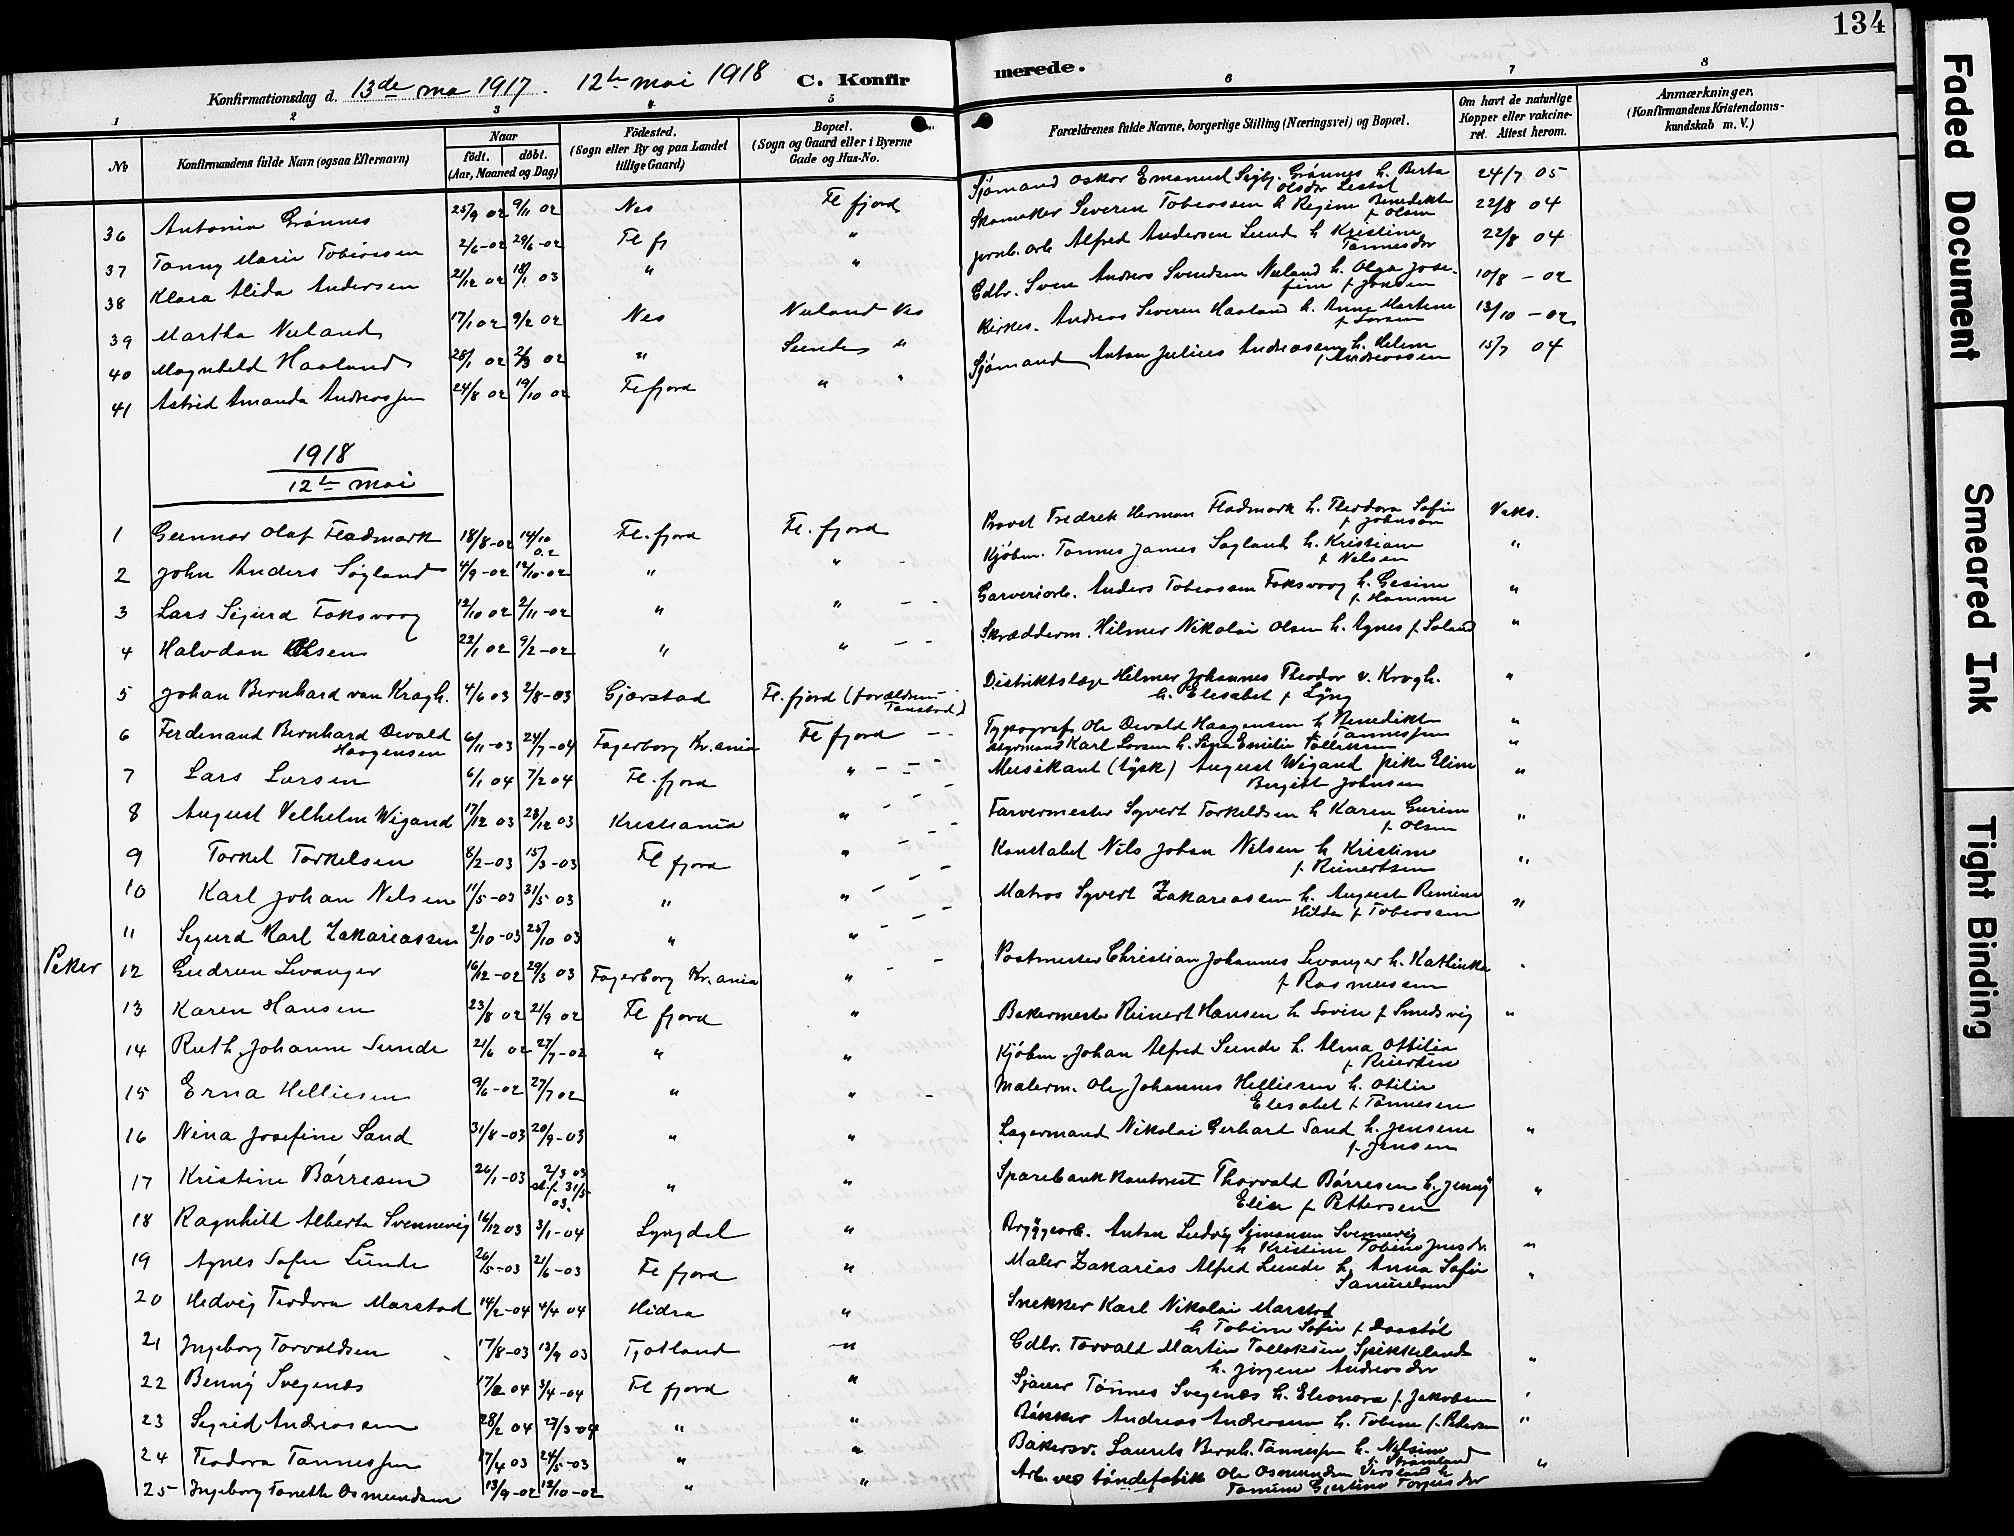 134
Konfirmationsdag d. 13de ma 1917. 12te mai 1918 C. Konfirmerede.
1 2 3 4 5 6 7 8
No Konfirmandens fulde Navn (ogsaa Efternavn) Naar født. døbt. (Aar, Maaned og Dag) Fødested. (Sogn eller By og paa Landet tillige Gaard) Bopæl. (Sogn og Gaard eller i Byerne Gade og Hus-No. Forældrenes fulde Navne, borgerlige Stilling (Næringsvei) og Bopæl. Om havt de naturlige Kopper eller vakcineret. Attest herom. Anmærkninger. (Konfirmandens Kristendomskundskab m. V.)
36 Antonia Grønnes 25/9 02 9/11 02 Nes Fl fjord Sjømand Oskar Emanuel Grønnes h. Berta Olsdr 24/7 05
37 Tanny Marie Tobiassen 2/6-02 29/6-02 Fl fj " Skomaker Severin Tobiassen h Regine Benedikte f Olsen 22/8 04
38 Klara Alida Andersen 21/12 02 18/1 03 " " jernb. arb Alfred Andersen Lund h Kristine Tønnesdr 22/8 04
39 Martha Nuland 17/1 02 9/2 02 Nes Nuland Nes Gdbr. Sven Andreas Svendsen Nuland h. Olga Josefine f Jonsen 10/8 - 02
40 Magnhild Haaland 28/1 02 2/3 02 " Sunde " Kirkes. Andreas Severin Haaland h. Anne Martine f Larsen 13/10 - 02
41 Astrid Amanda Andreassen 24/8 02 19/10 02 Fl fjord " " Sjømand Anton Julius Andreassen h. Helene f Andreassen 15/7 04
1918
12te mai
1 Gunnar Olaf Fladmark 18/8-02 14/10 02 Fl. fjord Fl. fjord Provst Fredrik Herman Fladmark h. Theodora Sofie f Johnsen Vaks.
2 John Anders Søyland 4/9-02 12/10-02 " " - Kjøbm. Tønnes James Søyland h. Kristiane f Nelsen "
3 Lars Sigurd Foksvoog 12/10 02 2/11-02 " " - - Garveriarb. Anders Tobiassen Foksvoog h. Gesine f. Hamme "
4 Halvdan Olsen 22/1 02 9/2-02 " " - - Skrædderm. Hilmer Nikolai Olsen h. Agnes f. Søland "
5 Johan Bernhard van Krogh. 4/6 03 2/8-03 Gjerstad Fl. fjord (forældrene Distriktslæge Hilmer Johannes Theodor v. Krogh. h. Elisabet f Lyng "
6 Ferdinand Bernhard Osvald Haagensen 6/11-03 24/7-04 Fagerborg Kr.ania Fl fjord - - Typograf Ole Osvald Haagensen h Benedikte f Tønnessen "
7 Lars Larsen 6/1 04 7/2 04 Fl. fjord " - - - Karl Larsen h. Emilie Tollisen "
8 August Velhelm Wigand 17/12 03 28/12 03 Kristiania " - - - Musikant (tysk) August Wigand pike Eline Bergitt Johnsen "
9 Torkel Torkelsen 8/2-03 15/3-03 Fl fjord " - - Farvermester Syvert Torkeldsen h Karen Gurine f. Olsen "
10 Karl Johan Nelsen 11/5-03 31/5 03 " " - - - Konstabel Nils Johan Nilsen h Kristine f. Reinertsen "
11 Sigurd Karl Zakariassen 2/10-03 25/10 03 " " - - Matros Syvert Zakariassen h. August Remine Hilda f Tobiassen "
Peker 12 Gudrun Levanger 16/12-02 29/3 03 Fagerborg Kr.ania " - - Postmester Christian Johannes Levanger h. Kathinka f Rasmussen
13 Karen Hansen 23/8 02 21/9 02 Fl fjord " Bakermester Reinert Hansen h Sovie f Smedsvig "
14 Ruth Johanne Sunde 21/6 02 27/7-02 " " Kjøbm Johan Alfred Sunde h. Alma Ottilia f
15 Erna Helliesen 9/6-02 27/7 02 " " - Malerm. Ole Johannes Helliesen h. Otilie Elesabet f Tønnesen
16 Nina Josefine Sand 31/8-03 20/9-03 " " Lagermand Nikolai Gerhart Sand h. Jensine f. Jensen "
17 Kristine Børresen 26/1-03 2/3 03 st.f. 31/5 03. " " Sparebank kontorist Thorvald Børresen h. Jenny Elise f Pettersen "
18 Ragnhild Alberta Svennevig 16/12 03 3/1-04 Lyngdal " Bryggearb. Anton Ludvig Simonsen Svennevig h Kristine Tobine Jensdr. "
19 Agnes Sofie Lunde 26/5-03 21/6-03 Fl fjord " Maler Zakarias Alfred Lunde h. Anna Sofie Samuelsen "
20 Hedvig Teodora Marstad 14/2-04 4/4 04 Hidra " Snekker Karl Nikolai Marstad h Tobine Sofie f
21 Ingeborg Torvaldsen 17/8-03 13/9 03 Fjotland " Gdbr. Torvald Martin Tollaksen Spikkeland h. Jørgine Andreasdr "
22 Benny Svegenes 17/2 04 3/4-04 Fl fjord " Tønnes Svegenes h. Eleonora f. Jakobsen "
23 Sigrid Andreassen 28/2 04 27/3-04 " " Andreas Andreassen h. Tobine f. Pedersen "
24 Teodora Tønnessen 17/4 03 24/5-03 " " Bakersv. Laurets Bernh. Tønnessen h. Nilsine f Strømland "
25 Ingeborg Tonette Osmundsen 13/9-02 12/10-02 " " Arb. ved tøndefabrik Ole Osmundsen h Tomine Gjertine Torjusdr
Faded Document
Smeared Ink
Tight Binding